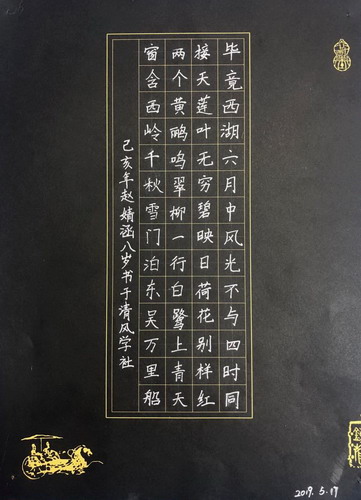 毕竟西湖六月中风光不与四时同
接天莲叶无穷碧映日荷花别样红
两个黄鹂鸣翠柳一行白鹭上青天
窗含西岭千秋雪门泊东吴万里船
己亥年赵婧涵八岁书于清风学社
2019.5.17